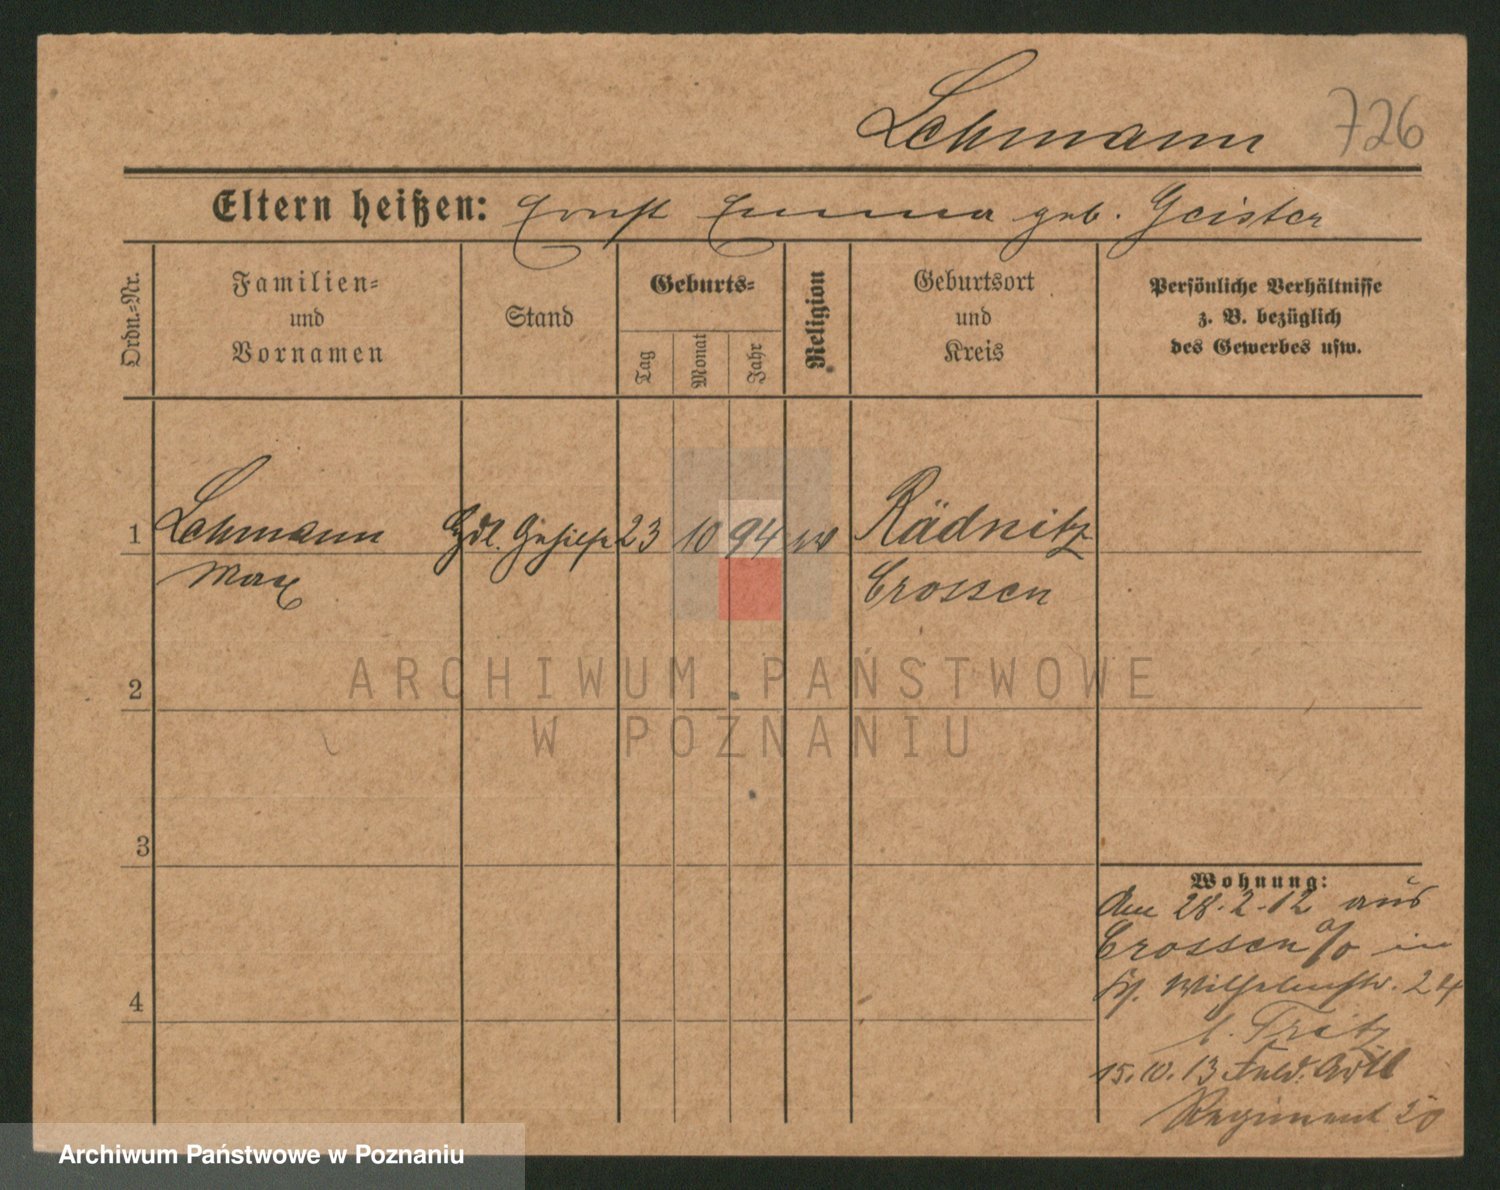 Lehmann 726
Eltern heißen: Ernst Emma geb. Geister
Ordn.-Nr.
Familien-
und
Vornamen
Stand
Geburts-
Tag
Monat
Jahr
Religion
Geburtsort
und
Kreis
Persönliche Verhältnisse
z. B. bezüglich
des Gewerbes usw.
1 Lehmann Hdl. Gehilfe 23 10 94 Rädnitz
Max Crossen
2
3
4
Wohnung:
Am 28.2.12 aus
Crossen a/O in
Wilhelmstr. 24
b. Fritz
15.10.13 Feld. Artl
Regiment 20
ARCHIWUM PAŃSTWOWE
W POZNANIU
Archiwum Państwowe w Poznaniu